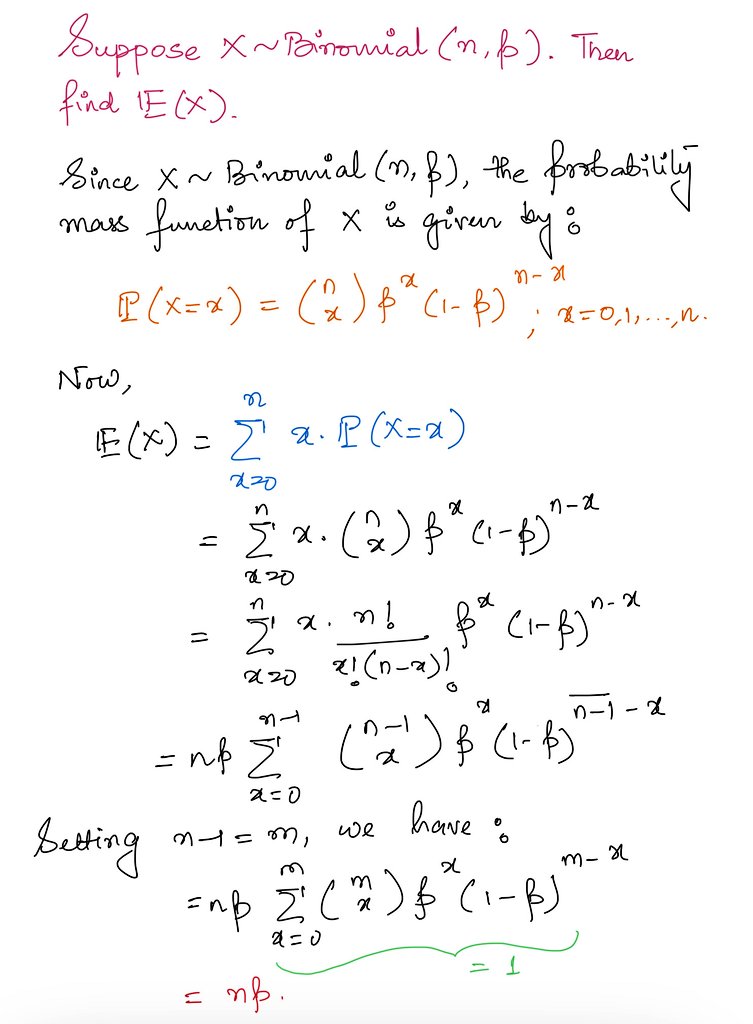 Suppose X ~ Binomial (n, p). Then
find 𝔼(X).
Since X ~ Binomial (n, p), the probability
mass function of X is given by :
ℙ(X=x) = (n x) p^x (1-p)^{n-x} ; x=0,1,...,n.
Now,
𝔼(X) = ∑_{x=0}^{n} x. ℙ(X=x)
= ∑_{x=0}^{n} x. (n x) p^x (1-p)^{n-x}
= ∑_{x=0}^{n} x. n!/x!(n-x)! p^x (1-p)^{n-x}
= np ∑_{x=0}^{n-1} (n-1 x) p^x (1-p)^{\overline{n-1}-x}
Setting n-1 = m, we have :
= np ∑_{x=0}^{m} (m x) p^x (1-p)^{m-x}
= 1
= np.